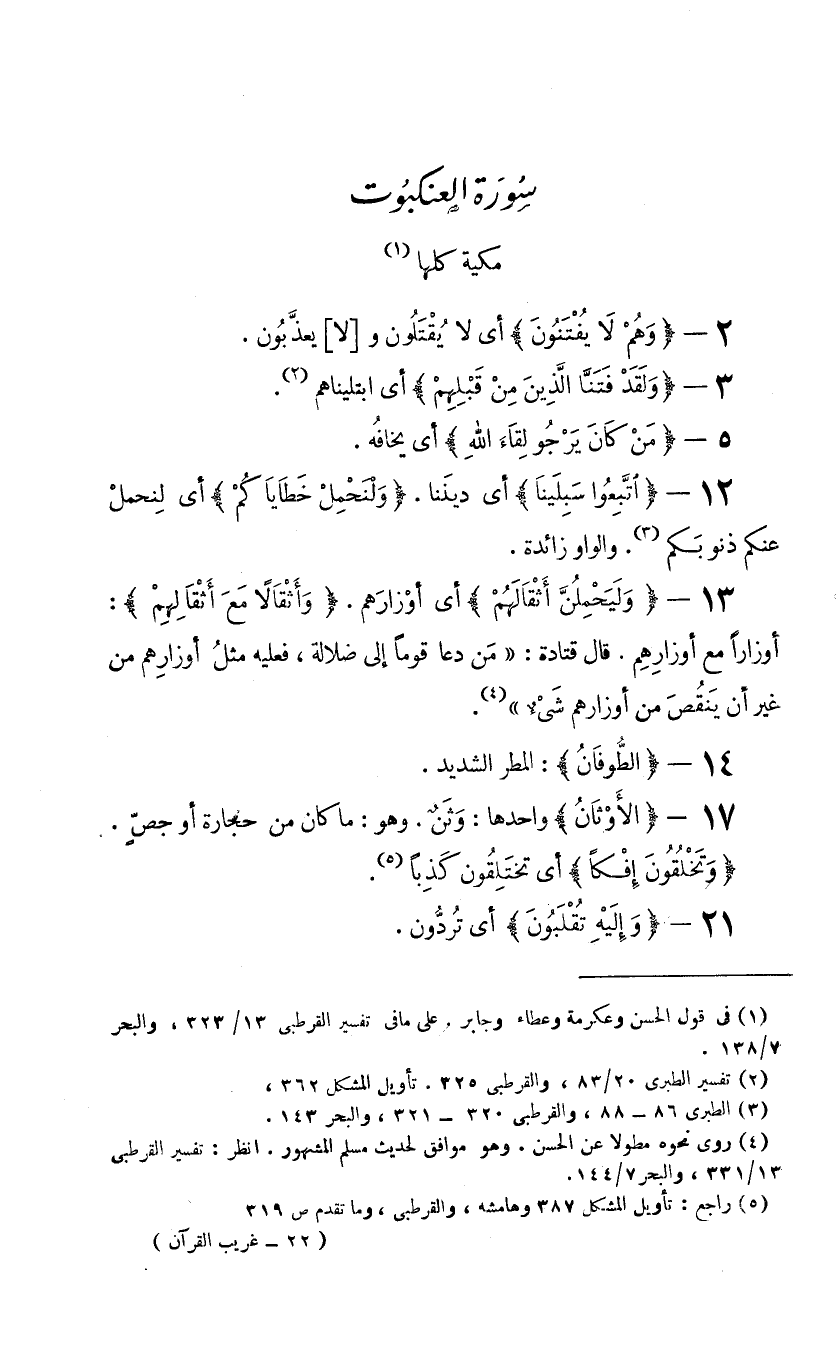 سُورَة العنكبُوت
مكية كلها (١)
٢ – ﴿ وَهُمْ لَا يُفْتَنُونَ ﴾ أى لا يُقْتَلُون و [لا] يعذَّبُون .
٣ – ﴿ وَلَقَدْ فَتَنَّا الَّذِينَ مِنْ قَبْلِهِمْ ﴾ أى ابتليناهم (٢).
٥ – ﴿ مَنْ كَانَ يَرْجُو لِقَاءَ اللهِ ﴾ أى يخافُه .
١٢ – ﴿ اتَّبِعُوا سَبِيلَنَا ﴾ أى ديننَا . ﴿ وَلْنَحْمِلْ خَطَايَاكُمْ ﴾ أى لِنحملْ
عنكم ذنوبَكم (٣). والواو زائدة .
١٣ – ﴿ وَلَيَحْمِلُنَّ أَثْقَالَهُمْ ﴾ أى أوْزارَهم . ﴿ وَأَثْقَالًا مَعَ أَثْقَالِهِمْ ﴾ :
أوزاراً مع أوزارِهِم . قال قتادة : « مَن دعا قوماً إلى ضلالة ، فعليه مثلُ أوزارِهم من
غير أن يَنقُصَ من أوزارهم شَىْءٌ » (٤).
١٤ – ﴿ الطُّوفَانُ ﴾ : المطر الشديد .
١٧ – ﴿ الأَوْثَانُ ﴾ واحدها : وَثَنٌ . وهو : ما كان من حجارة أو جصٍّ .
﴿ وَتَخْلُقُونَ إِفْكاً ﴾ أى تختَلِقُون كَذِباً (٥).
٢١ – ﴿ وَإِلَيْهِ تُقْلَبُونَ ﴾ أى تُردُّون .
(١) فى قول الحسن وعكرمة وعطاء وجابر . على مافى تفسير القرطبى ١٣/ ٣٢٣ ، والبحر
١٣٨/٧ .
(٢) تفسير الطبرى ٨٣/٢٠ ، والقرطبى ٣٢٥ . تأويل المشكل ٣٦٢ ،
(٣) الطبرى ٨٦ – ٨٨ ، والقرطبى ٣٢٠ – ٣٢١ ، والبحر ١٤٣ .
(٤) روى نحوه مطولا عن الحسن . وهو موافق لحديث مسلم المشهور . انظر : تفسير القرطبى
٣٣١/١٣ ، والبحر ١٤٤/٧.
(٥) راجع : تأويل المشكل ٣٨٧ وهامشه ، والقرطبى ، وما تقدم ص ٣١٩
( ٢٢ – غريب القرآن )